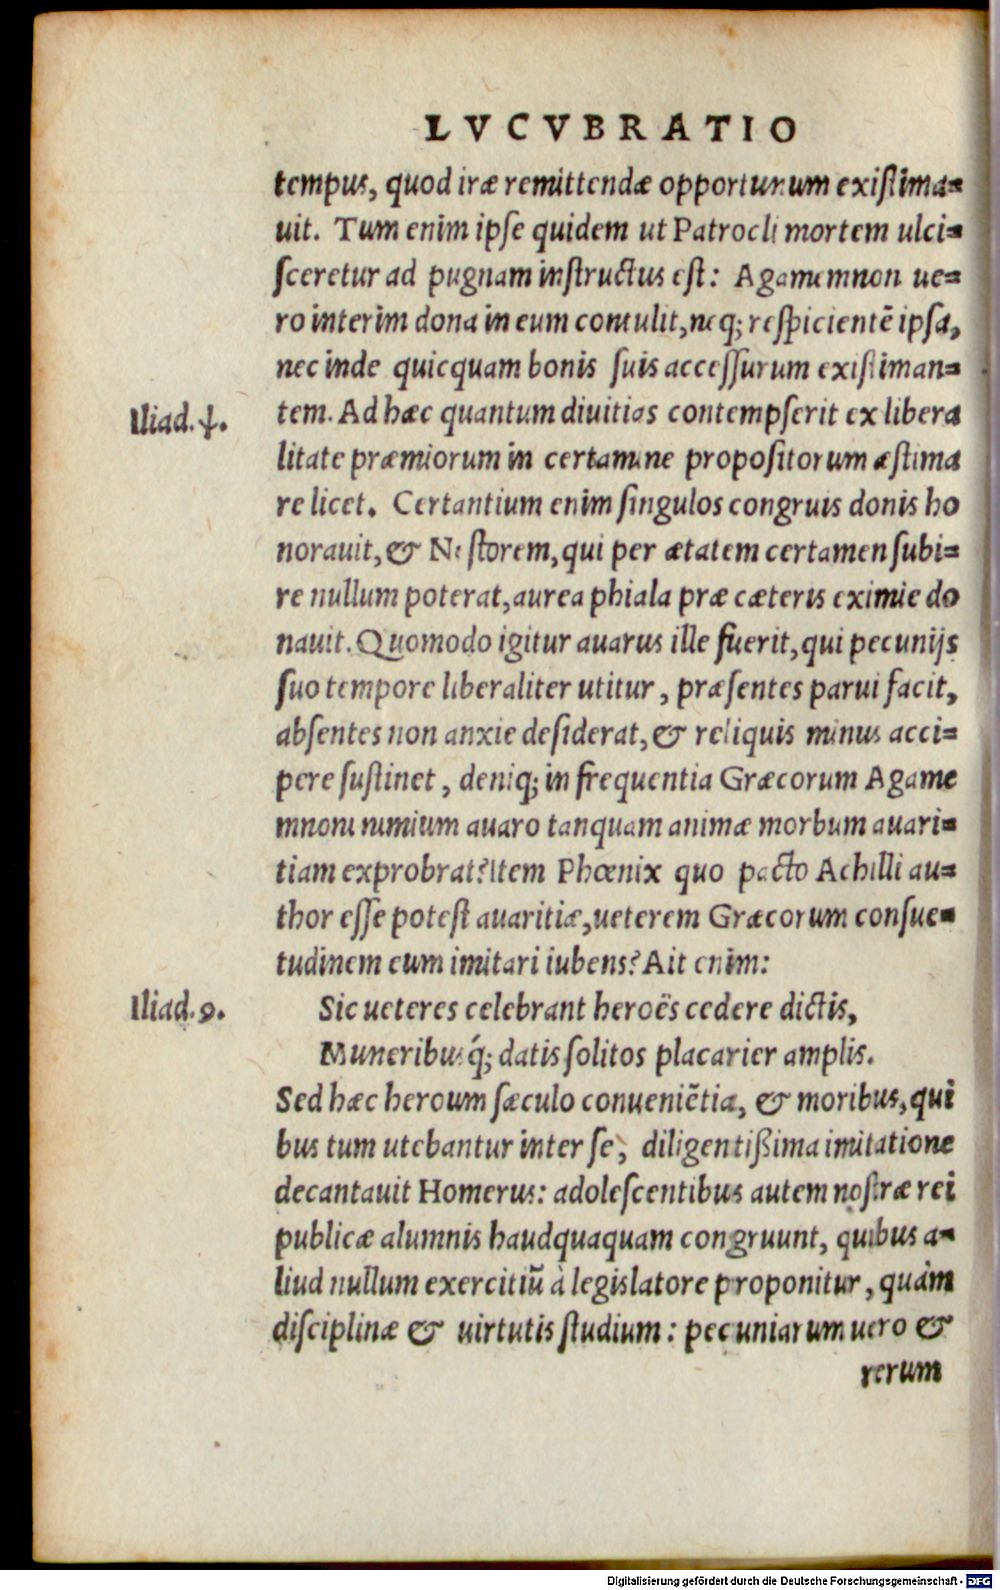 LVCVBRATIO
tempus, quod iræ remittendæ opportunum existima=
uit. Tum enim ipse quidem ut Patrocli mortem ulci=
sceretur ad pugnam instructus est: Agamemnon ue=
ro interim dona in eum contulit, neq; respicientē ipsa,
nec inde quicquam bonis suis accessurum existiman=
Iliad.ψ.
tem. Ad hæc quantum diuitias contempserit ex libera
litate præmiorum in certamine propositorum æstima
re licet. Certantium enim singulos congruis donis ho
norauit, & Nestorem, qui per ætatem certamen subi=
re nullum poterat, aurea phiala præ cæteris eximie do
nauit. Quomodo igitur auarus ille fuerit, qui pecunijs
suo tempore liberaliter utitur, præsentes parui facit,
absentes non anxie desiderat, & reliquis minus acci=
pere sustinet, deniq; in frequentia Græcorum Agame
mnoni nimium auaro tanquam animæ morbum auari=
tiam exprobrat? Item Phœnix quo pacto Achilli au=
thor esse potest auaritiæ, ueterem Græcorum consue=
tudinem eum imitari iubens? Ait enim:
Iliad.9.
Sic ueteres celebrant heroës cedere dictis,
Muneribusq́; datis solitos placarier amplis.
Sed hæc heroum sæculo conueniētia, & moribus, qui
bus tum utebantur inter se, diligentißima imitatione
decantauit Homerus: adolescentibus autem nostræ rei
publicæ alumnis haudquaquam congruunt, quibus a=
liud nullum exercitiū à legislatore proponitur, quàm
disciplinæ & uirtutis studium: pecuniarum uero &
rerum
Digitalisierung gefördert durch die Deutsche Forschungsgemeinschaft - DFG